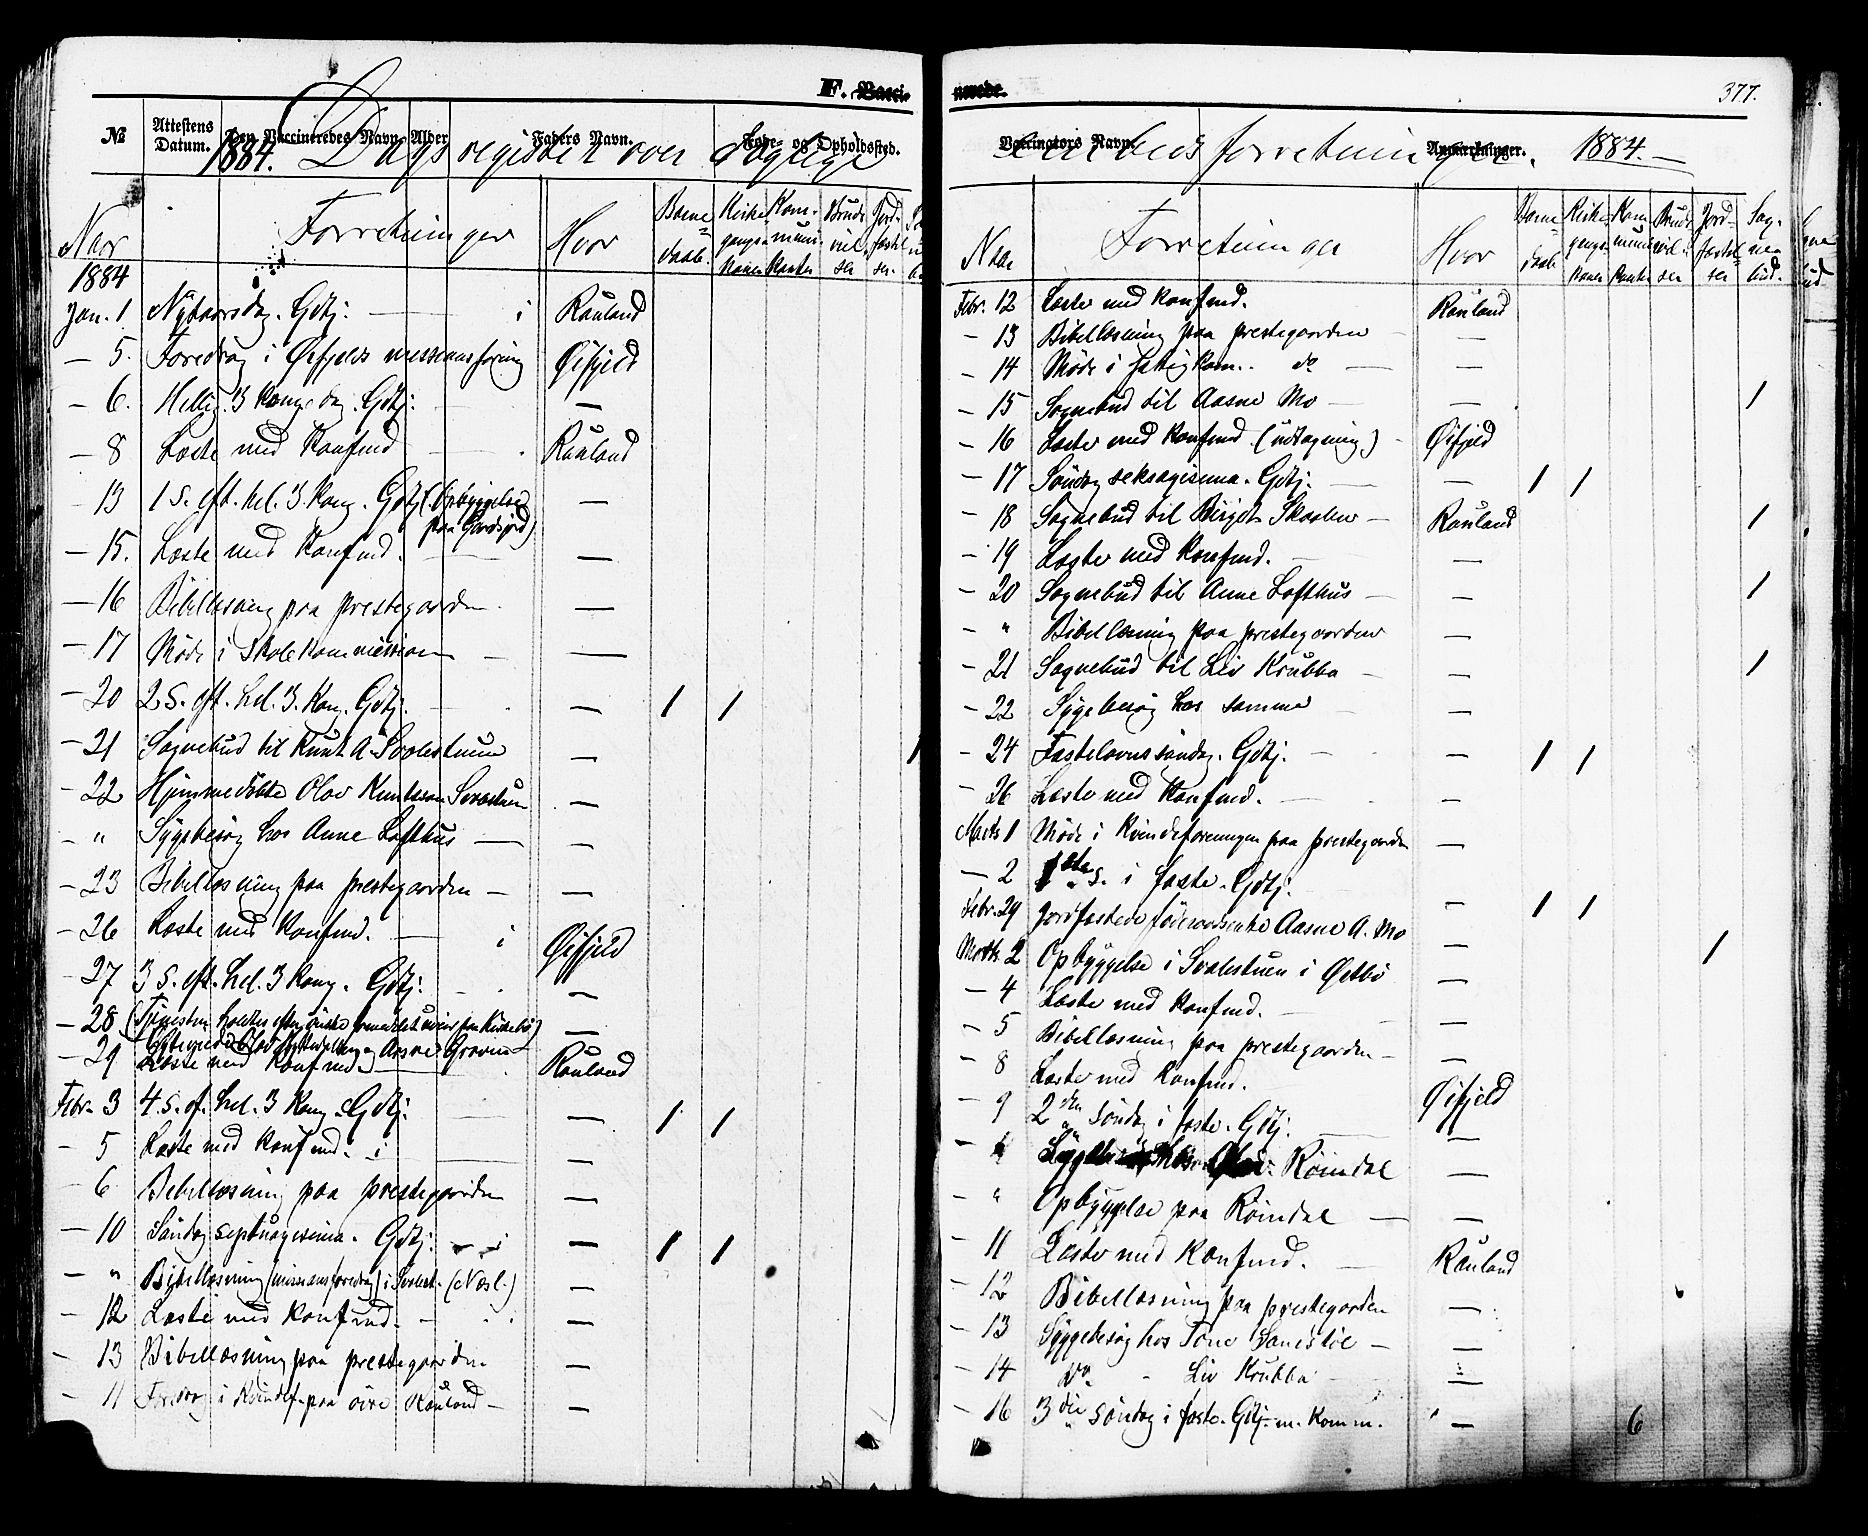 F. Vacci-
№ Attestens Datum. Den Vaccineredes Navn. Alder. Faders Navn. Føde- og Opholdssted.
1884. Dagsregister over daglige
Naar Forretninger Hvor Barne-daab. Kirkegangs-koner Kommuni-kanter Brudevielser Jordfæstelser.
1884
Jan. 1 Nytaarsdag. Gdtj. i Rauland
— 5. Foredrag i Øifjelds missionsforening Øifjeld
— 6. Hellig 3 Konge dag. Gdtj. —
— 8 Læste med Konfmd Rauland
— 13 1 S. eft. hel. 3 Kong. Gdtj (Opbyggelse
paa Gardsjord) —
— 15. Læste med Konfmd. —
— 16 Bibellæsning paa prestegaarden —
— 17 Møde i Skolekommission —
— 20 2 S. eft. hel. 3. Kong. Gdtj. — 1 1
— 21 Sognebud til Knut A. Svalestuen — 1
— 22 Hjemmedøbte Olav Knutson Svalestuen —
— " Sygebesøg hos Anne Lofthus —
— 23 Bibellæsning paa prestegaarden —
— 26 Læste med Konfmd. i Øifjeld
— 27 3 S. eft. hel. 3 Kong. Gdtj. —
— 28 —
— 29 Læste med Konfmd. Rauland
Febr. 3 4. S. ef. hel. 3 Kong. Gdtj. — 1 1
— 5 Læste med Konfmd. i —
— 6 Bibellæsning paa prestegaarden —
— 10 Søndag septuagesima. Gdtj. i — 1 1
— " Bibellæsning (missionsforedrag) i Svalest. (Næsl.) —
— 12 Læste med Konfmd. —
— 13 Bibellæsning paa prestegaarden —
— 11 Foredrag i Kvindef. paa øvre Rauland —
377.
Vaccinators Navn. Anmærkninger.
Embedsforretninger. 1884. —
Naar Forretninger Hvor Barne-daab Kirke-gangs-koner Kommunikanter Brudevielser Jordfæstelser Sognebud.
Febr. 12 Læste med Konfmd. Rauland
— 13 Bibellæsning paa prestegaarden —
— 14 Møde i fattigkom. do —
— 15 Sognebud til Aasne Mo — 1
— 16 Læste med Konfmd. (udtagning) Øifjeld
— 17 Søndag seksagisima. Gdtj. — 1 1
— 18 Sognebud til Birgit Skaalen — Rauland 1
— 19 Læste med Konfmd. —
— 20 Sognebud til Anne Lofthus — 1
— " Bibellæsning paa prestegaarden —
— 21 Sognebud til Liv Krubba — 1
— 22 Sygebesøg hos samme —
— 24 Fastelavnssøndag. Gdtj. — 1 1
— 26 Læste med Konfmd. —
Marts 1 Møde i Kvindeforeningen paa prestegaarden —
— 2 1ste S. i faste. Gdtj. — 1 1
Febr. 29 Jordfæstede føderaadsenke Aasne A. Mo — 1
Marts 2 Opbyggelse i Svalestuen i Øetbø —
— 4 Læste med Konfmd. —
— 5 Bibellæsning paa prestegaarden —
— 8 Læste med Konfmd. Øifjeld
— 9 2den søndag i faste. Gdtj. —
— Røindal —
— " Opbyggelse paa Røindal —
— 11 Læste med Konfmd. Rauland
— 12 Bibellæsning paa prestegaarden —
— 13 Sygebesøg hos Tone —
— 14 do. - Liv Krubba —
— 16 3die søndag i faste. Gdtj. m. Komm. — 6